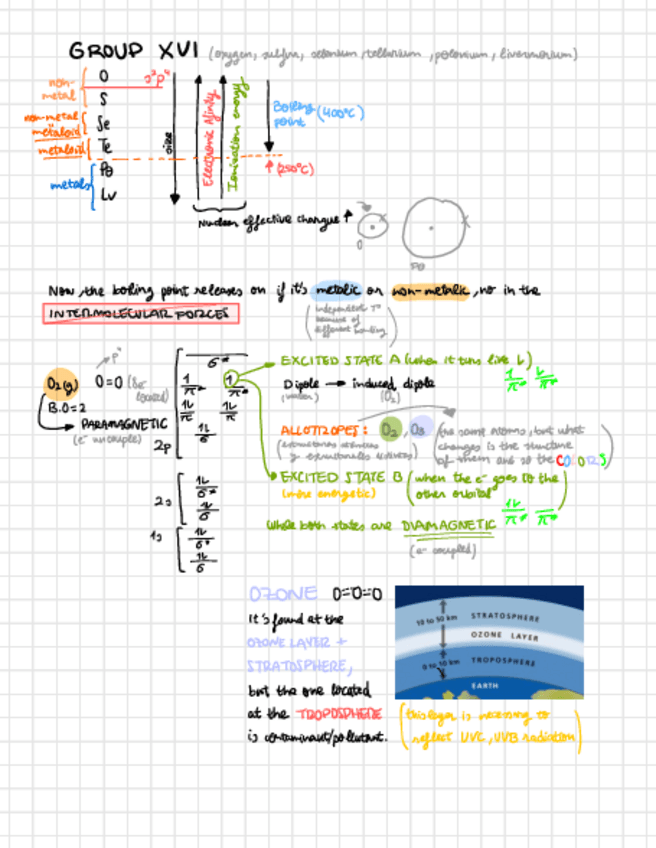 GROUP XVI (oxygen, sulfur, selenium, tellurium, polonium, livermorium)
non-metal
O
S
s²p⁴
non-metal
metaloid
Se
metaloid
Te
metals
Po
Lv
size
Electronic Afinity
Ionization energy
Boiling point (400°C)
↑ (250°C)
Nuclear effective charge ↑
O
Po
Now, the boiling point releases on if it's metalic or non-metalic, no in the
INTERMOLECULAR FORCES
(independent
because of
different bonding)
O₂(g) O=O
p⁴
B.O=2
→ PARAMAGNETIC
(e⁻ uncouple)
2p
6*
1 1
π* π*
1L 1L
π π
1L
6
2s
1L
6*
1L
6
1s
1L
6*
1L
6
EXCITED STATE A (when it turns like L)
Dipole → induced dipole
(O₂)
ALLOTROPES: O₂, O₃ (the same atoms, but what
changes is the structure
of them and so the COLORS)
EXCITED STATE B (when the e⁻ goes to the
(more energetic) other orbital)
While both states are DIAMAGNETIC
(e⁻ coupled)
OZONE O=O=O
It's found at the
OZONE LAYER +
STRATOSPHERE,
but the one located
at the TROPOSPHERE
is contaminant/pollutant.
10 to 50 km
STRATOSPHERE
OZONE LAYER
0 to 10 km
TROPOSPHERE
EARTH
(this layer is necessary to
reflect UVC, UVB radiation)